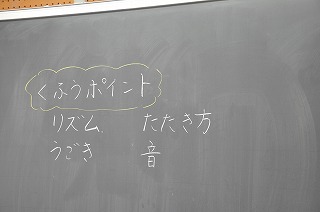 くふうポイント
リズム　たたき方
うごき　音